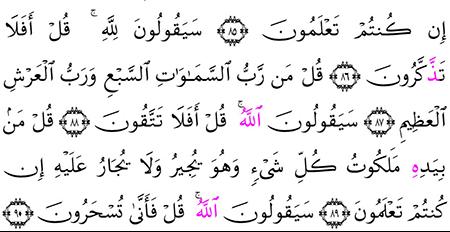 إِن كُنتُمْ تَعْلَمُونَ ٨٥ سَيَقُولُونَ لِلَّهِ ۚ قُلْ أَفَلَا
تَذَّكَّرُونَ ٨٦ قُلْ مَن رَّبُّ ٱلسَّمَٰوَٰتِ ٱلسَّبْعِ وَرَبُّ ٱلْعَرْشِ
ٱلْعَظِيمِ ٨٧ سَيَقُولُونَ ٱللَّهُ ۚ قُلْ أَفَلَا تَتَّقُونَ ٨٨ قُلْ مَنۢ
بِيَدِهِ مَلَكُوتُ كُلِّ شَىْءٍ وَهُوَ يُجِيرُ وَلَا يُجَارُ عَلَيْهِ إِن
كُنتُمْ تَعْلَمُونَ ٨٩ سَيَقُولُونَ ٱللَّهُ ۚ قُلْ فَأَنَّىٰ تُسْحَرُونَ ٩٠